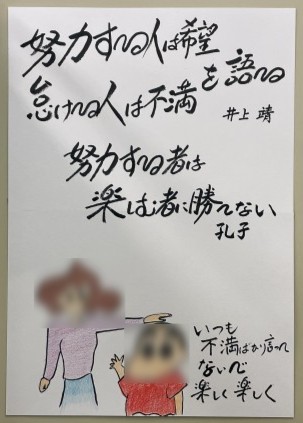 努力する人は希望
を語る
怠ける人は不満
井上 靖
努力する者は
楽しむ者に勝てない
孔子
いつも
不満ばかり言って
ないで
楽しく楽しく